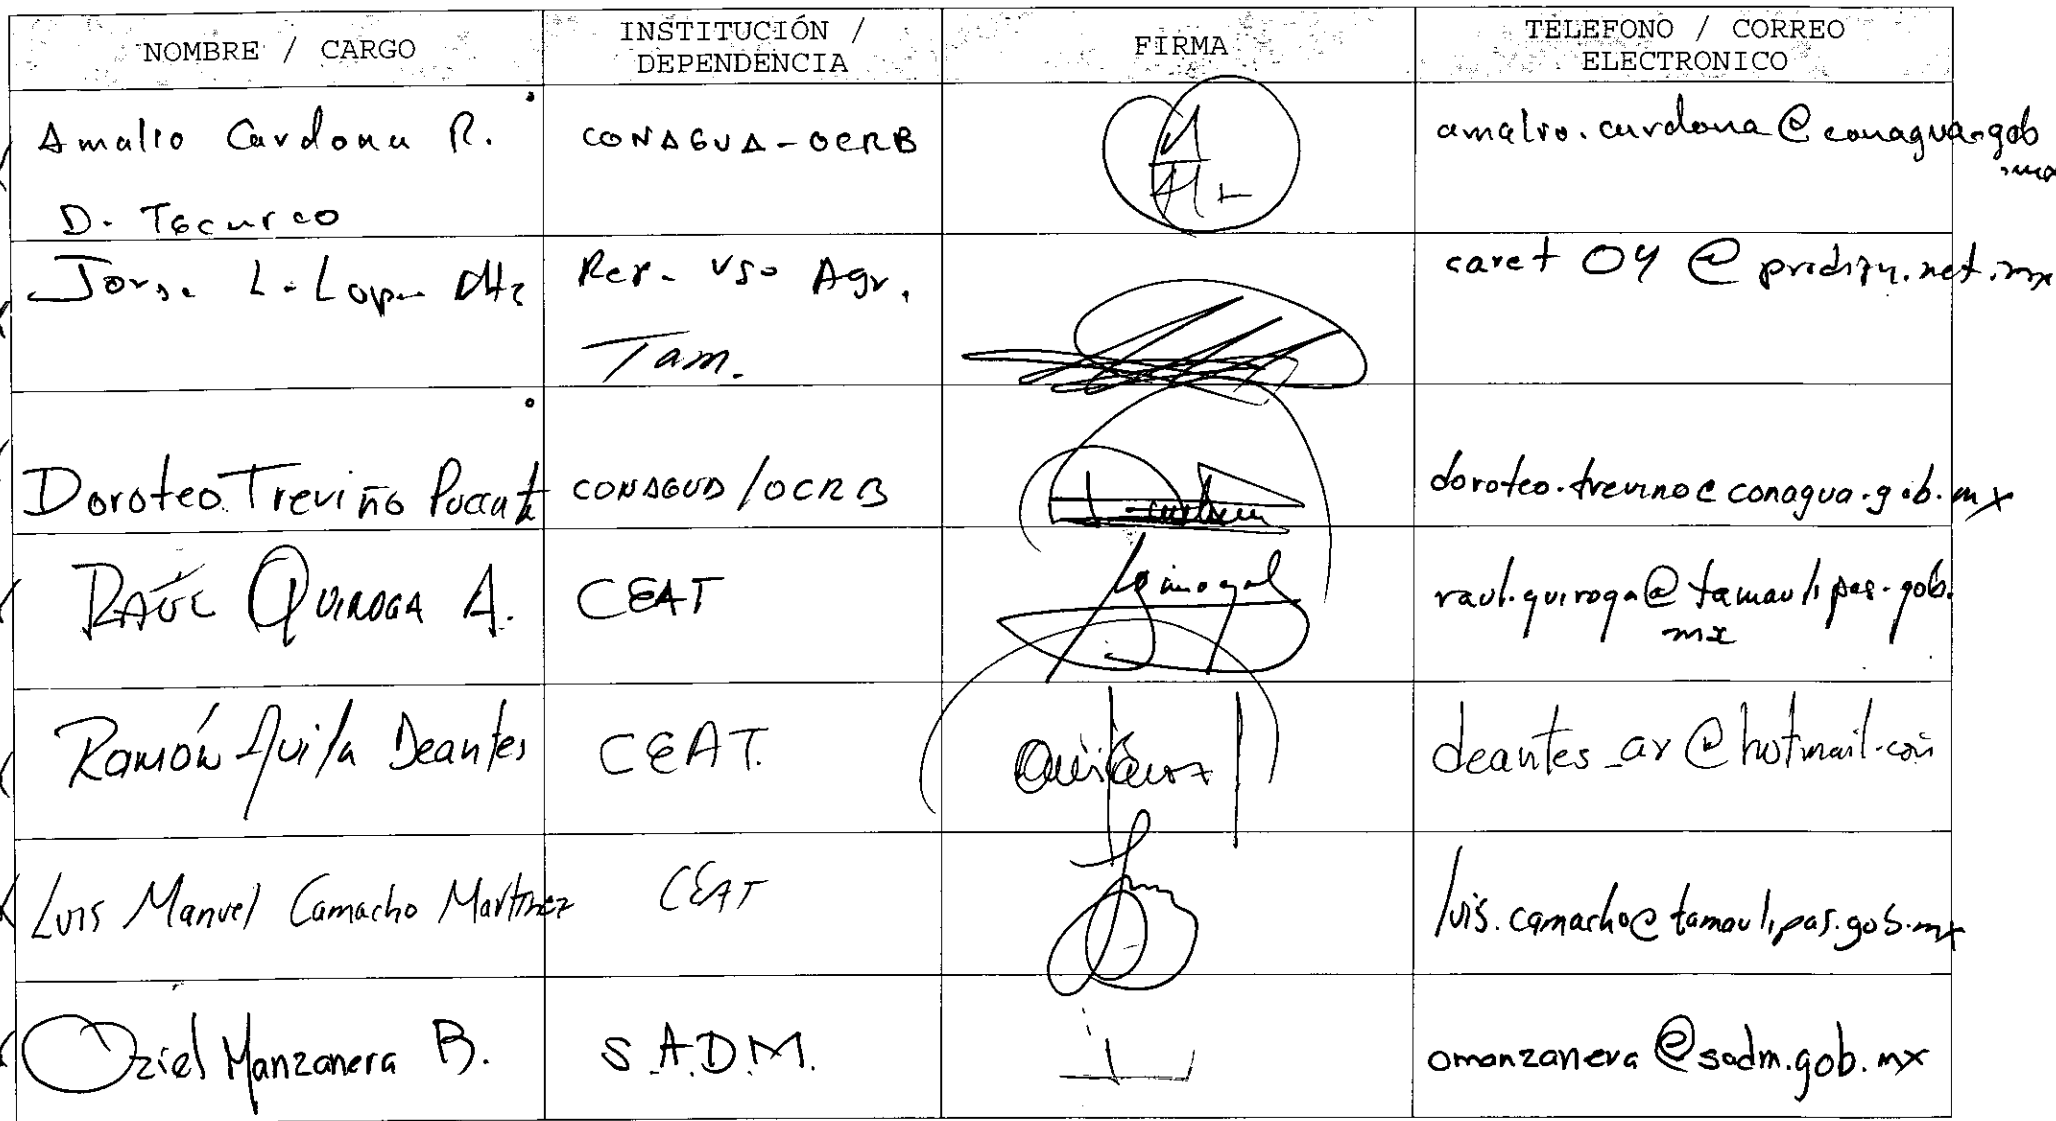 NOMBRE / CARGO
INSTITUCIÓN /
DEPENDENCIA
FIRMA
TELEFONO / CORREO
ELECTRONICO
Amalio Cardona R.
D. Técnico
CONAGUA-OCRB
amalio.cardona@conagua.gob
.mx
Jorge L. Lopez
Rep. Uso Agr.
Tam.
caret 04 @ prodigy.net.mx
Doroteo Treviño
CONAGUA/OCRB
doroteo.trevino@conagua.gob.mx
RAÚL QUIROGA A.
CEAT
raul.quiroga@tamaulipas.gob.
mx
Ramón Avila Deantes
CEAT.
deantes_ar@hotmail.com
Luis Manuel Camacho Martinez
CEAT
luis.camacho@tamaulipas.gob.mx
Oziel Manzanera B.
S.A.D.M.
omanzanera@sadm.gob.mx